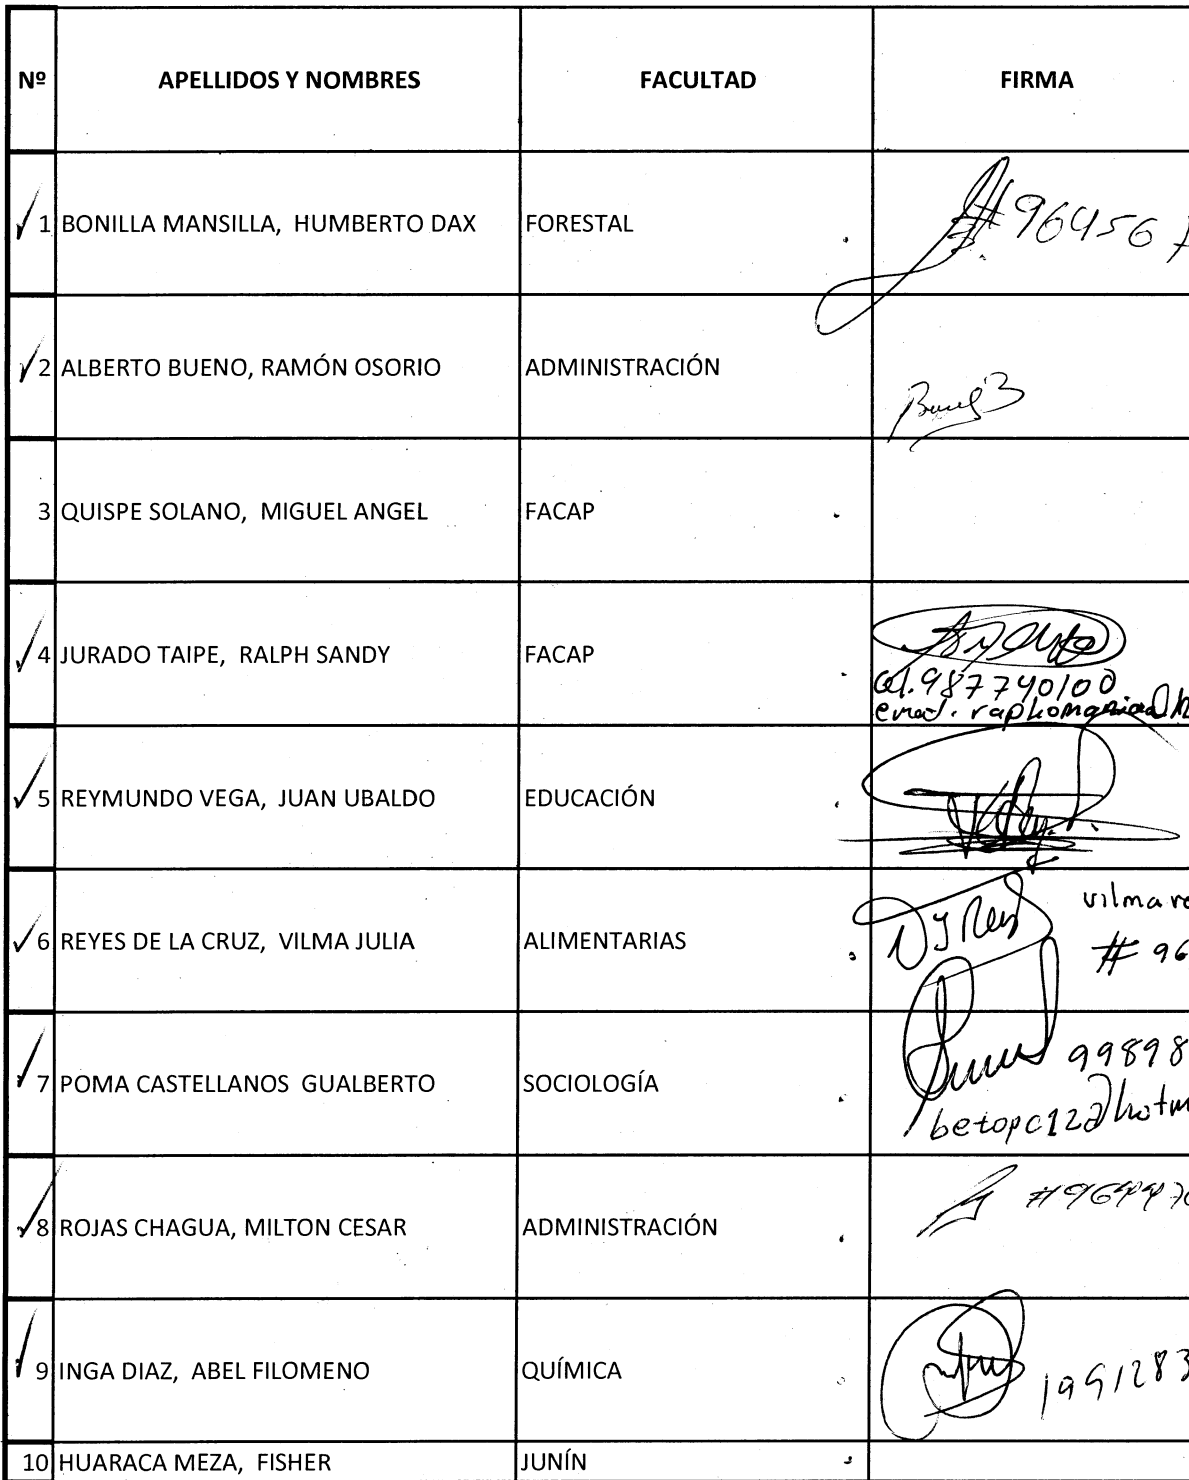 Nº APELLIDOS Y NOMBRES FACULTAD FIRMA
1 BONILLA MANSILLA, HUMBERTO DAX FORESTAL #964567
2 ALBERTO BUENO, RAMÓN OSORIO ADMINISTRACIÓN
3 QUISPE SOLANO, MIGUEL ANGEL FACAP
4 JURADO TAIPE, RALPH SANDY FACAP
cel. 987740100
5 REYMUNDO VEGA, JUAN UBALDO EDUCACIÓN
vilmare
6 REYES DE LA CRUZ, VILMA JULIA ALIMENTARIAS # 96
99898
7 POMA CASTELLANOS GUALBERTO SOCIOLOGÍA
betopc12@hotm
8 ROJAS CHAGUA, MILTON CESAR ADMINISTRACIÓN
9 INGA DIAZ, ABEL FILOMENO QUÍMICA
10 HUARACA MEZA, FISHER JUNÍN